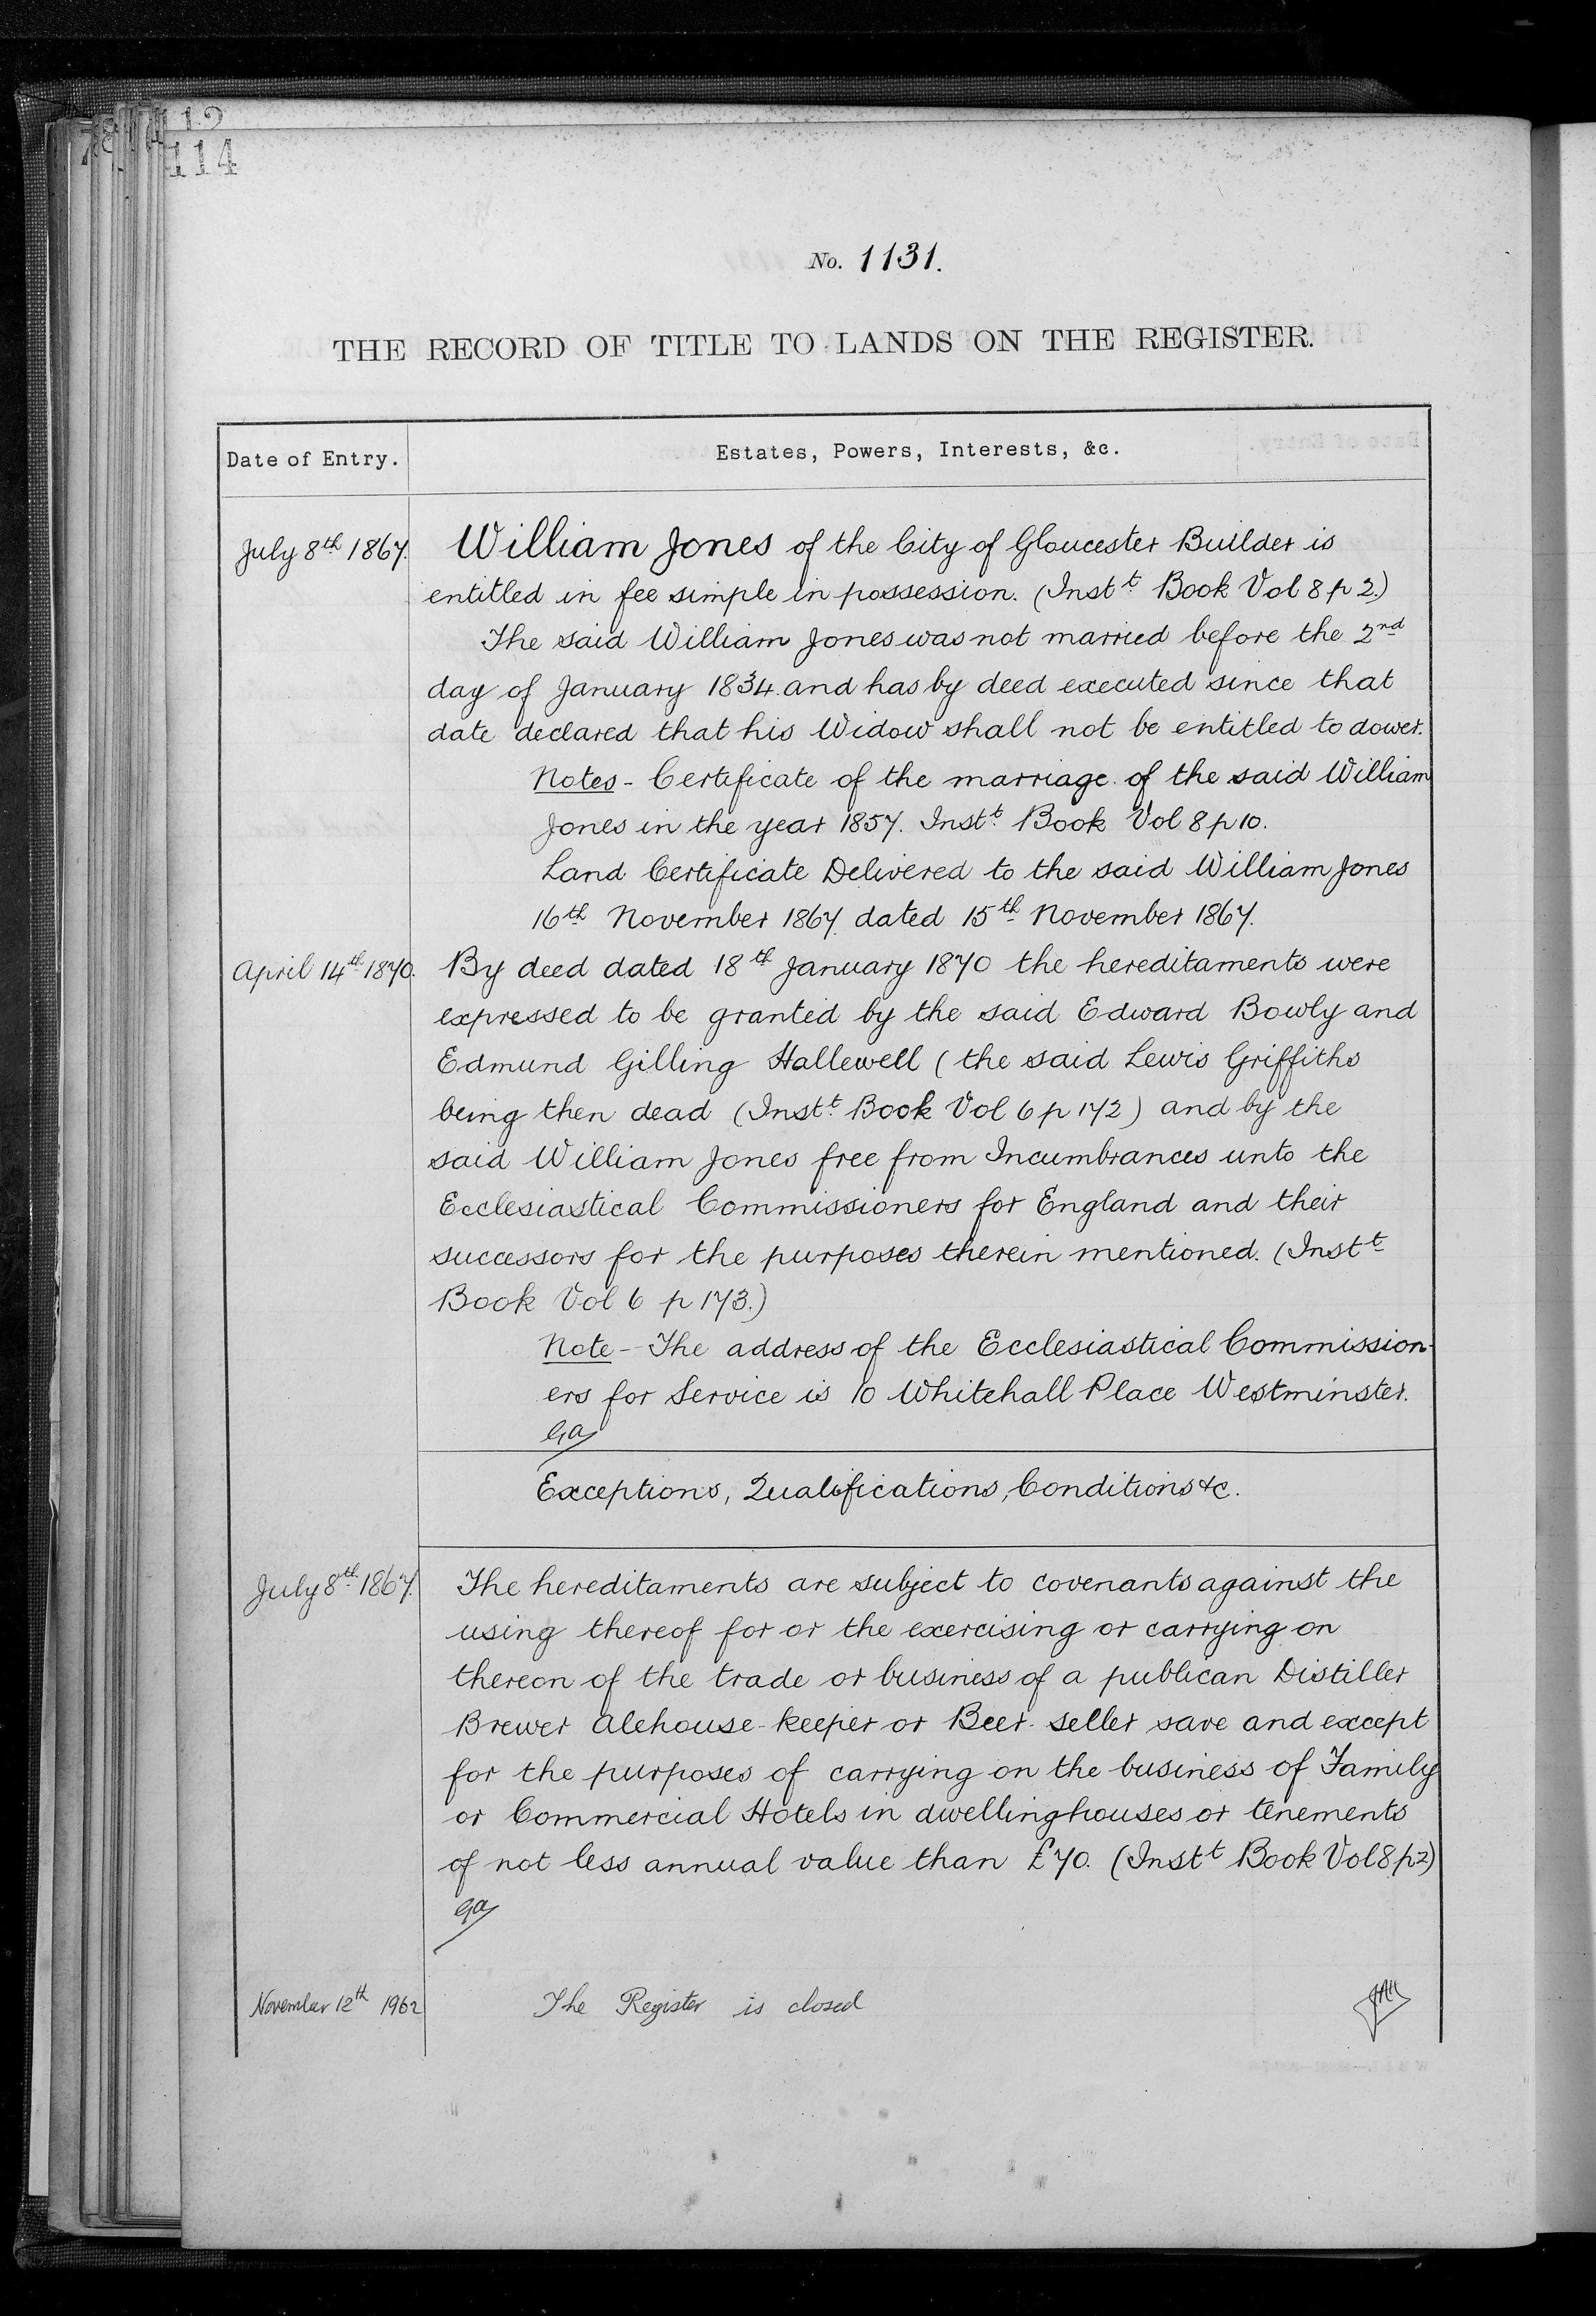 112
114
No. 1131.
THE RECORD OF TITLE TO LANDS ON THE REGISTER.
Date of Entry.
Estates, Powers, Interests, &c.
July 8th 1867.
William Jones of the City of Gloucester Builder is
entitled in fee simple in possession. (Instt Book Vol 8 p 2.)
The said William Jones was not married before the 2nd
day of January 1834. and has by deed executed since that
date declared that his Widow shall not be entitled to dower.
Notes - Certificate of the marriage of the said William
Jones in the year 1857. Instt Book Vol 8 p 10.
Land Certificate Delivered to the said William Jones
16th November 1867. dated 15th November 1867.
April 14th 1870.
By deed dated 18th January 1870 the hereditaments were
expressed to be granted by the said Edward Bowly and
Edmund Gilling Hallewell (the said Lewis Griffiths
being then dead (Instt Book Vol 6 p 172) and by the
said William Jones free from Incumbrances unto the
Ecclesiastical Commissioners for England and their
successors for the purposes therein mentioned. (Instt
Book Vol 6 p 173.)
Note - The address of the Ecclesiastical Commission-
ers for Service is 10 Whitehall Place Westminster.
Exceptions, Qualifications, Conditions &c.
July 8th 1867.
The hereditaments are subject to covenants against the
using thereof for or the exercising or carrying on
thereon of the trade or business of a publican Distiller
Brewer Alehouse-keeper or Beer-seller save and except
for the purposes of carrying on the business of Family
or Commercial Hotels in dwellinghouses or tenements
of not less annual value than £70. (Instt Book Vol 8 p 2)
November 12th 1962
The Register is closed